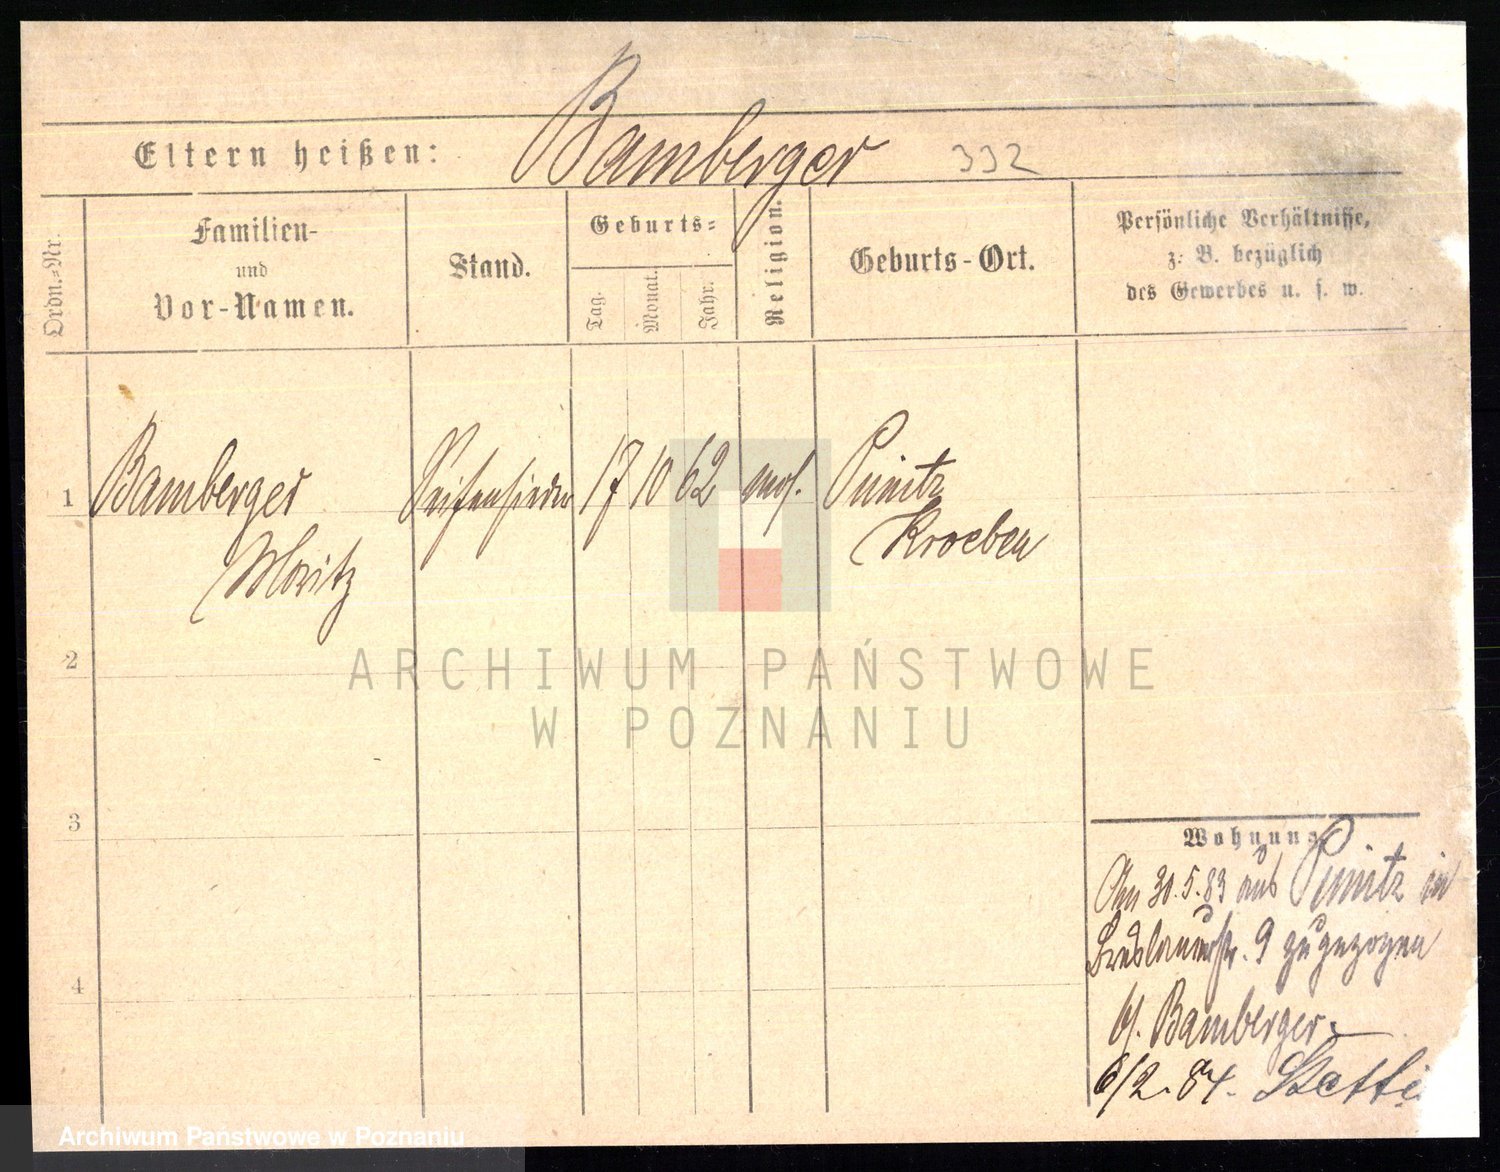 Eltern heißen: Bamberger 332
Ordn.=Nr.
Familien-
und
Vor-Namen.
Stand.
Geburts=
Tag.
Monat.
Jahr.
Religion.
Geburts-Ort.
Persönliche Verhältnisse,
z. B. bezüglich
des Gewerbes u. s. w.
1 Bamberger Seifensieder 17 10 62 mos. Punitz
Moritz Kroeben
2
ARCHIWUM PAŃSTWOWE
W POZNANIU
3
Wohnung
Am 30.5.83 aus Punitz in
Breslauerstr. 9 zugezogen
b/. Bamberger
4
6/2. 84. Stetti
Archiwum Państwowe w Poznaniu